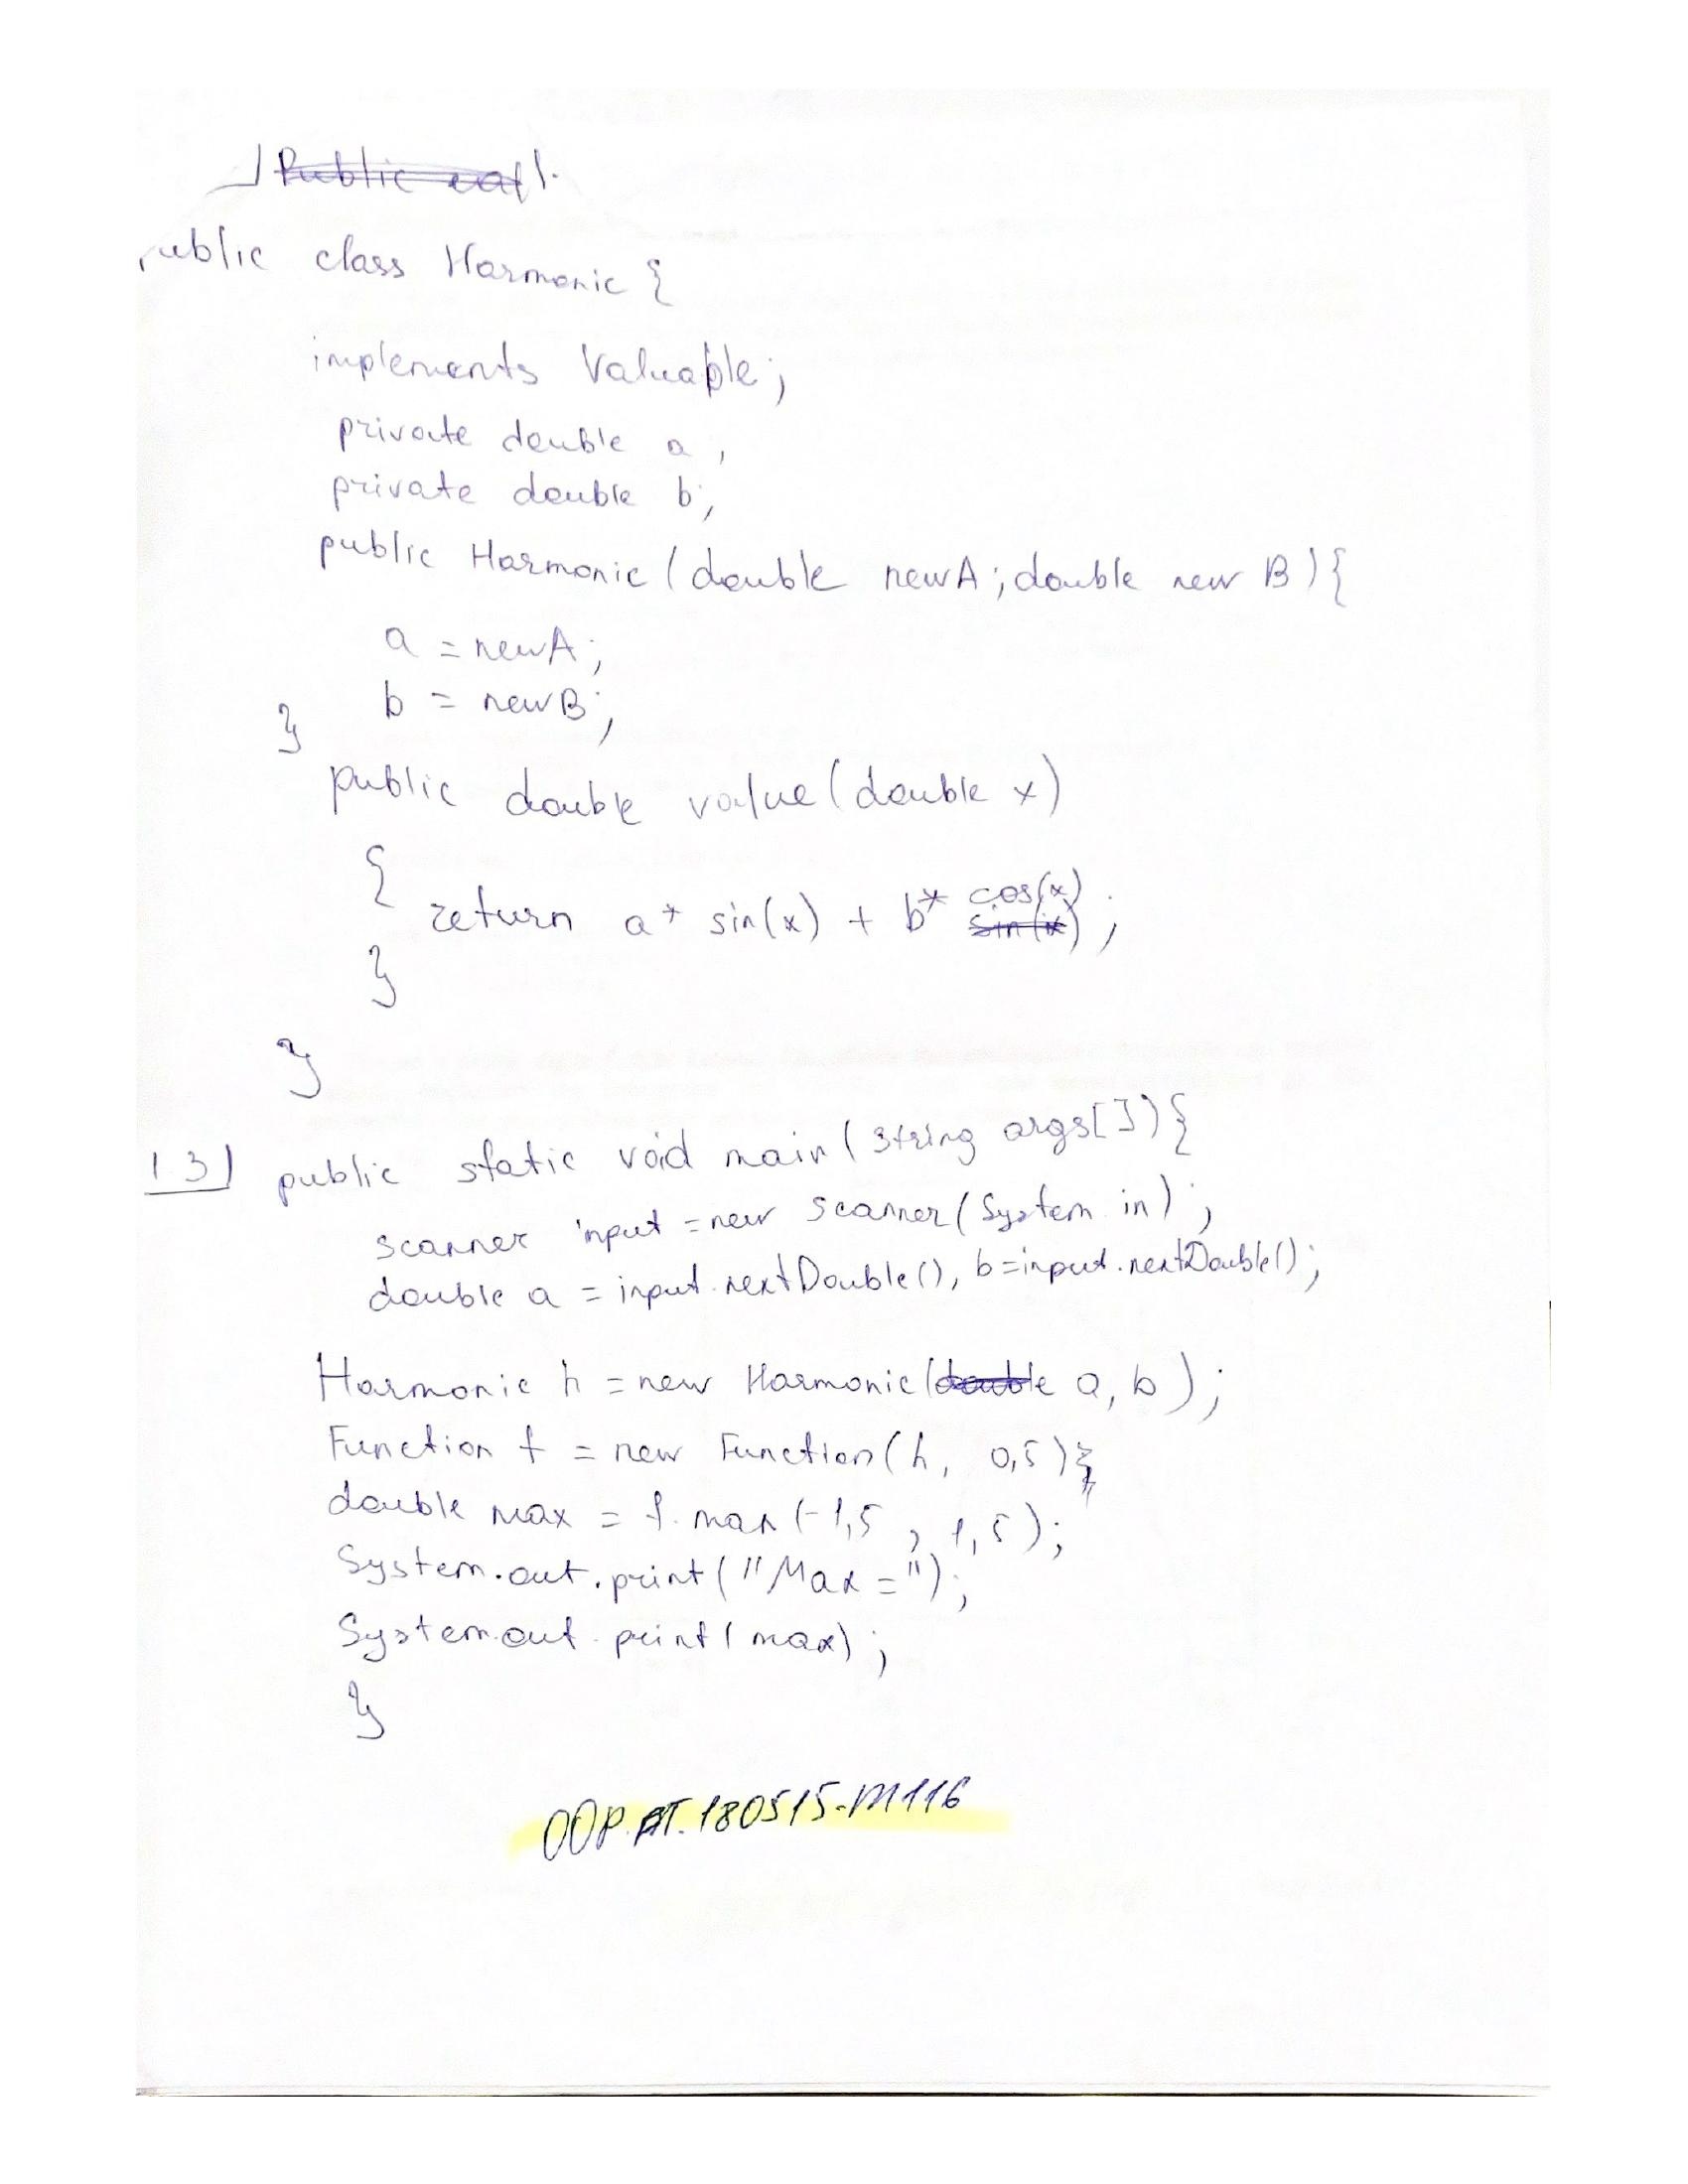 public class Harmonic {
implements Valuable;
private double a,
private double b;
public Harmonic (double newA; double new B) {
a = newA;
b = newB;
}
public double value (double x)
{
return a * sin(x) + b * cos(x) ;
}
}
1.3) public static void main (string args[]) {
scanner input = new scanner (System.in) ;
double a = input.nextDouble(), b=input.nextDouble();
Harmonic h = new Harmonic (a, b) ;
Function f = new Function (h, 0,5);
double max = f.max (-1,5 , 1,5);
System.out.print ("Max =");
System.out.print (max) ;
}
OOP.AT.180515-M116